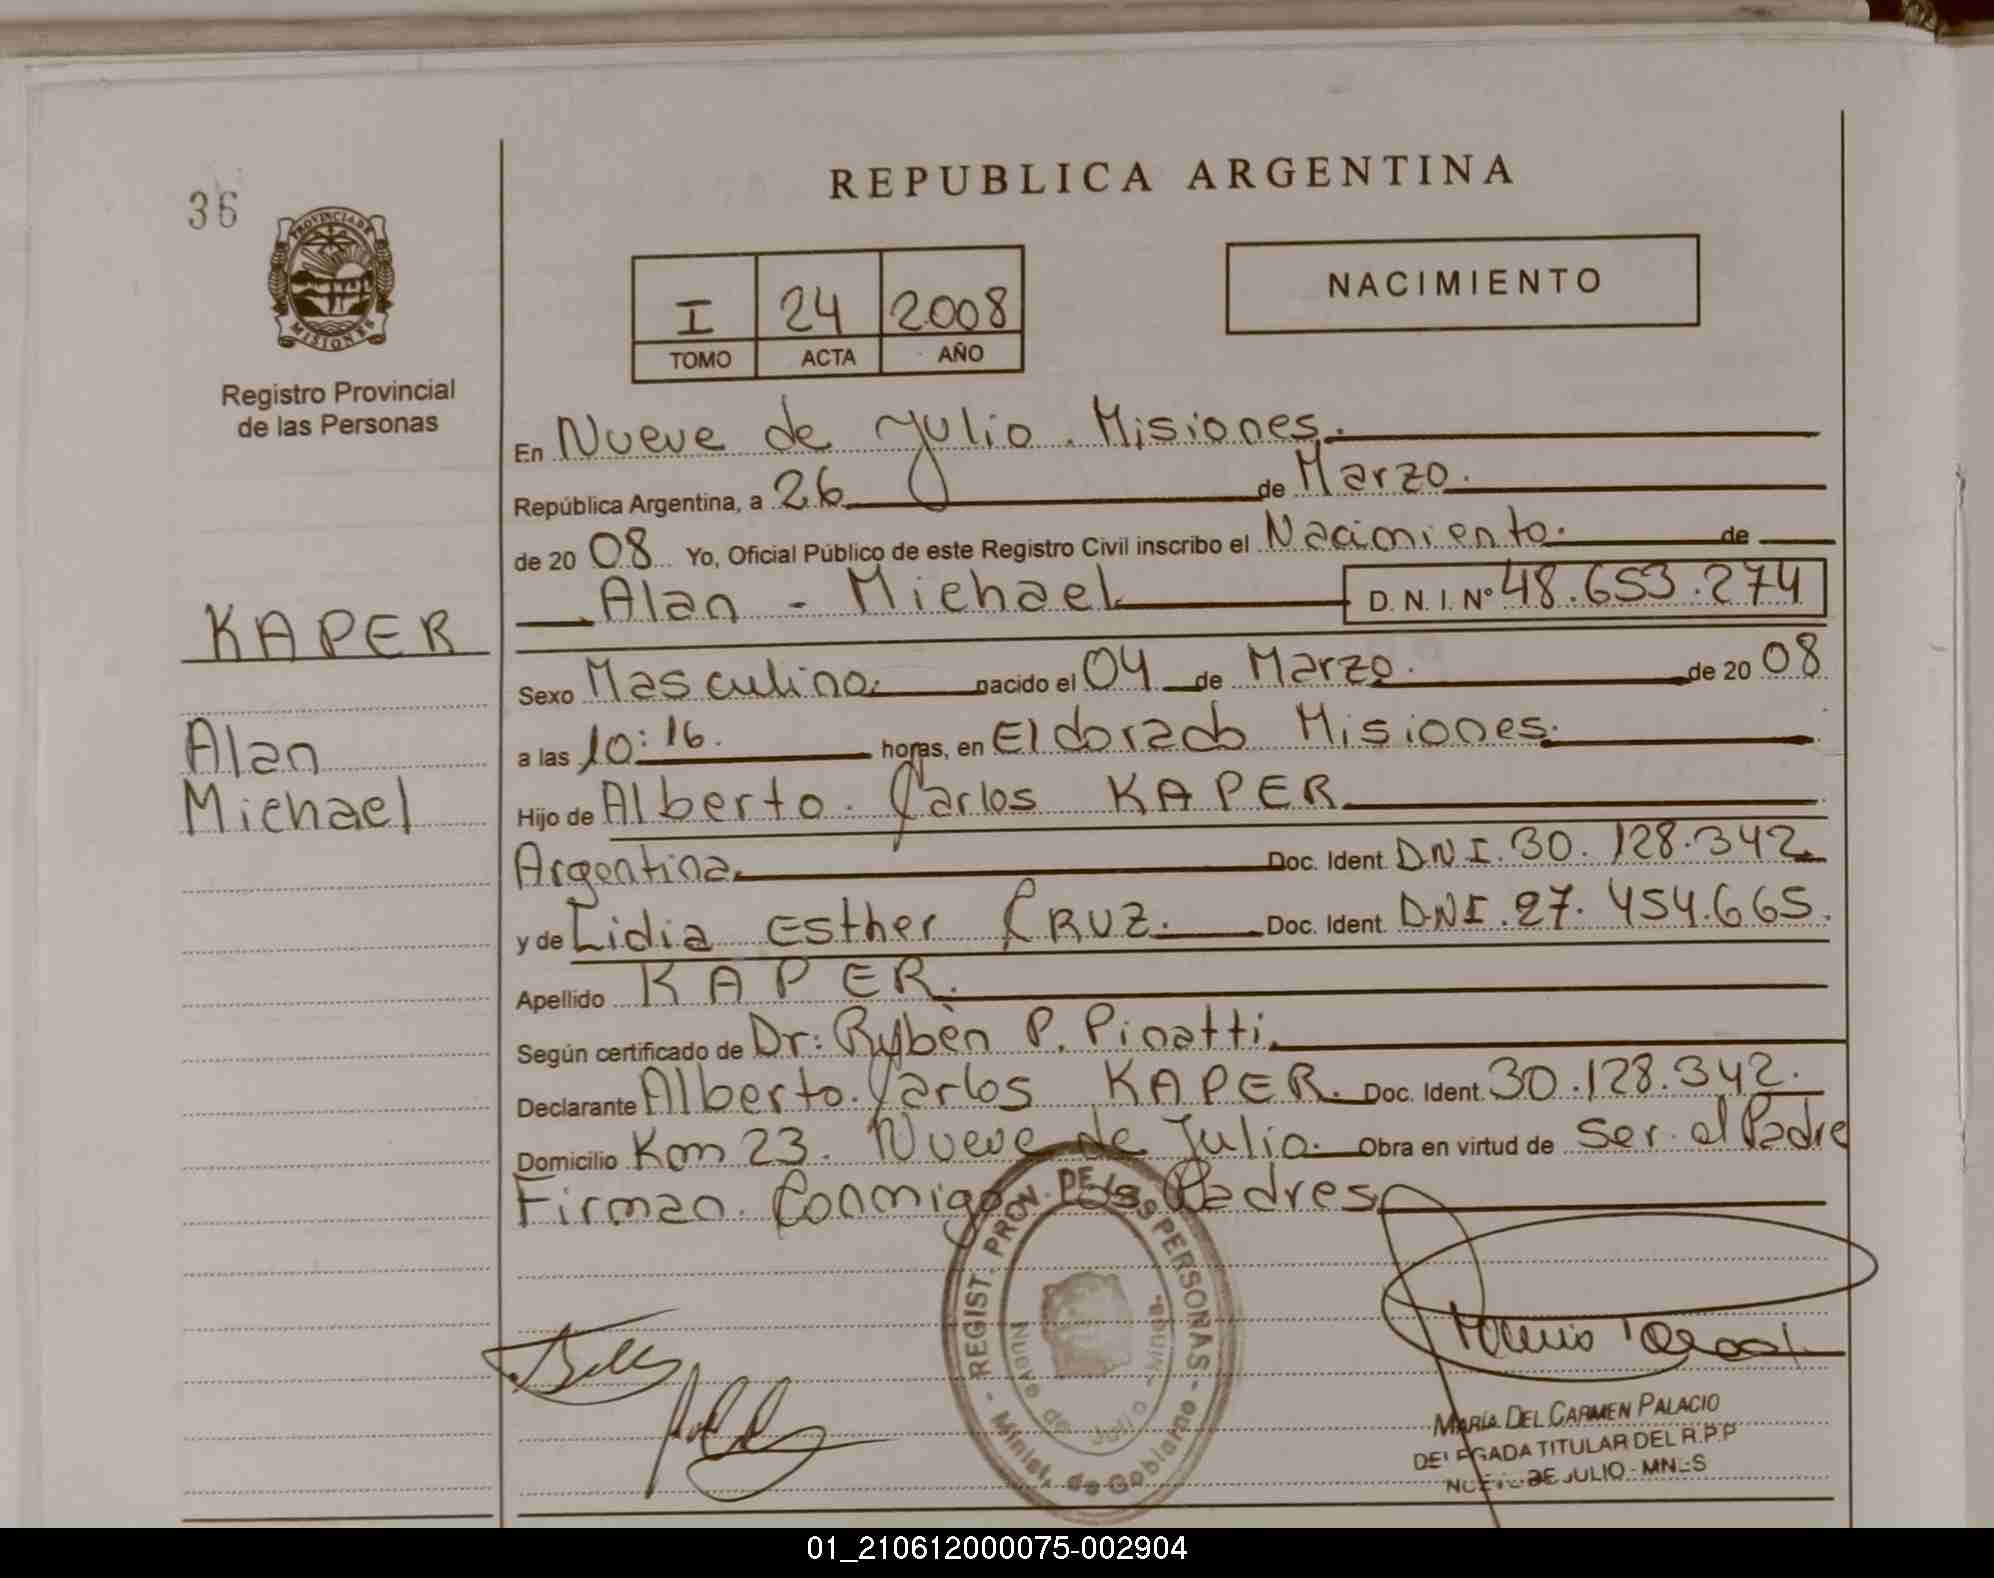 REPUBLICA ARGENTINA
36
PROVINCIA DE
MISIONES
Registro Provincial
de las Personas
I 24 2008
TOMO ACTA AÑO
NACIMIENTO
En Nueve de Julio. Misiones.
República Argentina, a 26 de Marzo.
de 20 08 Yo, Oficial Público de este Registro Civil inscribo el Nacimiento. de
Alan - Michael D.N.I. Nº 48.653.274
KAPER
Alan
Michael
Sexo Masculino. nacido el 04 de Marzo. de 20 08
a las 10:16. horas, en Eldorado Misiones.
Hijo de Alberto. Carlos KAPER
Argentina. Doc. Ident. DNI. 30. 128.342.
y de Lidia Esther CRUZ. Doc. Ident. DNI. 27. 454.665.
Apellido KAPER.
Según certificado de Dr: Rubèn P. Pinatti.
Declarante Alberto. Carlos KAPER. Doc. Ident. 30.128.342.
Domicilio Km 23. Nueve de Julio. Obra en virtud de Ser. el Padre
Firman. Conmigo los Padres
REGIST. PROV. DE LAS PERSONAS
Nueve de Julio - Mnes.
- Minist. de Gobierno -
MARÍA DEL CARMEN PALACIO
DELEGADA TITULAR DEL R.P.P
NUEVE DE JULIO - MNES
01_210612000075-002904